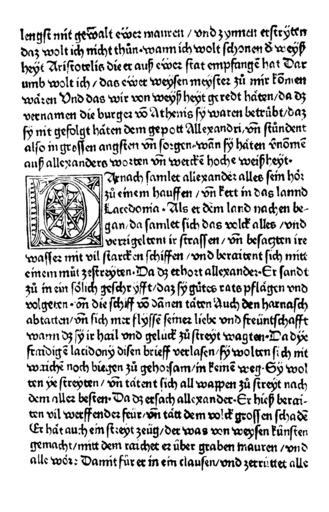 lengst mit gewalt ewer mauren / vnd zynnen erstryten
daz wolt ich nicht thůn · wann ich wolt schonen d̄ weyß
heyt Aristotelis die er auß ewer stat empfangē hat Dar
umb wolt ich / das ewer weysen meyster zů mir kōmen
wåren Vnd das wir von weyßheyt geredt håten / da dz
vernamen die burger vō Athenis sy waren betrůbt / daz
sy nit gefolgt håten dem gepott Allexandri / vn̄ stůndent
also in grossen angsten vn̄ sorgen · wan̄ sy håten v̄nomē
auß allexanders worten vn̄ wercken hoche weißheyt ·
DArnach samlet allexander alles sein hőr
zů einem hauffen / vn̄ kert in das lannd
Lacedonia · Als er dem land nachen be-
gan / da samlet sich das volck alles / vnd
verzigelten ir strassen / vn̄ besatzten ire
wasser mit vil starcken schiffen / vnd beraitent sich mitt
einem můt zestreyten · Da dz erhort allexander · Er sandt
zů in ein sőlich geschryfft / daz sy gůtes rats pflågen vnd
volgeten · vn̄ die schiff vō dānen tåten Auch den harnasch
abtåtten / vn̄ sich mer flyssē seiner liebe vnd freüntschafft
wann dz sy ir hail vnd gelück zů streyt wagten · Da dye
fraidigē lacidony disen brieff verlasen / sy wolten sich nit
waiche noch biegen zů gehorsam / in keinē weg · Sy wol
ten ye streyten / vn̄ tåtent sich all wappen zů streyt nach
dem aller besten · Da dz ersach allexander · Er hieß berai-
ten vil werffender feür / vn̄ tått dem volck grossen schadē
Er håt auch ein streyt zeüg / der was von weysen kůnsten
gemacht / mitt dem raichet er über graben mauren / vnd
alle wőr · Damit für er in ein clausen / vnd zerrüttet alle